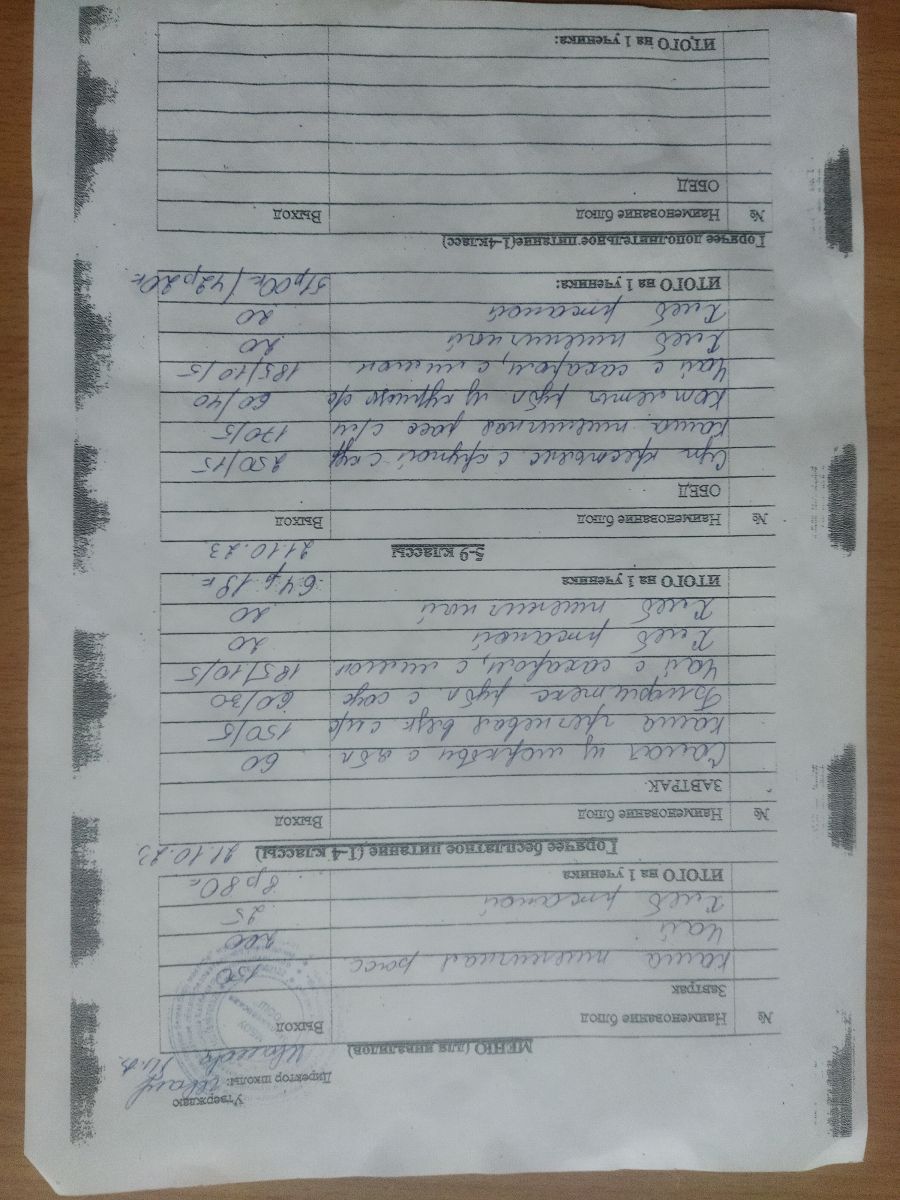 Утверждаю
Директор школы:
МЕНЮ (для инвалидов)
№ Наименование блюд Выход
Завтрак
каша пшеничная расс 150
Чай 200
Хлеб ржаной 25
ИТОГО на 1 ученика 8р80к
Горячее бесплатное питание (1-4 классы) 21.10.23
№ Наименование блюд Выход
ЗАВТРАК
Салат из моркови с ябл 60
каша гречневая вязк с м/с 150/5
Бифштекс рубл. с соус 60/30
Чай с сахаром, с лимон 185/10/5
Хлеб ржаной 20
Хлеб пшеничной 20
ИТОГО на 1 ученика 64р.19к
5-9 классы 21.10.23
№ Наименование блюд Выход
ОБЕД
Суп крестьянс с крупой с кур 250/15
каша пшеничная расс с/м 170/5
котлета рубл из курицы с/с 60/40
Чай с сахаром, с лимон 185/10/5
Хлеб пшеничной 20
Хлеб ржаной 20
ИТОГО на 1 ученика: 51р00к/42р20к
Горячее дополнительное питание(1-4класс)
№ Наименование блюд Выход
ОБЕД
ИТОГО на 1 ученика: